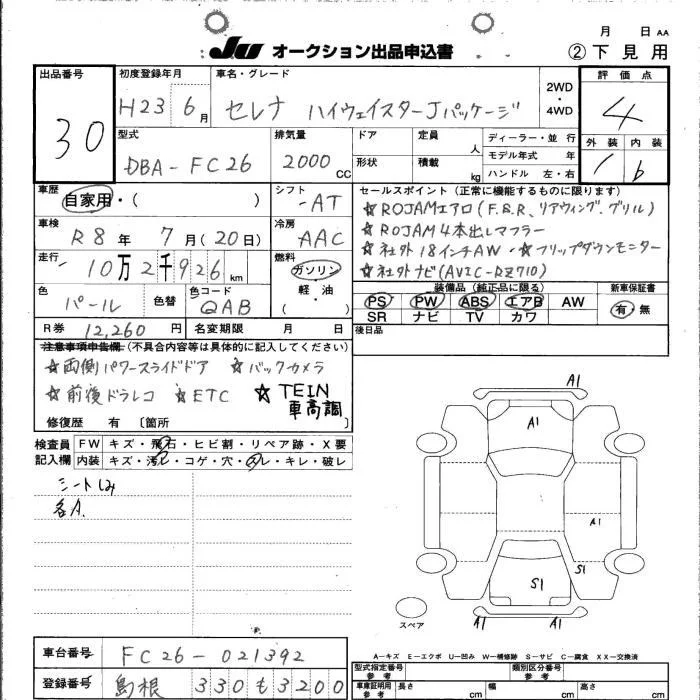 月 日 AA
JU オークション出品申込書 ②下見用
出品番号 30
初度登録年月 H23 6月
車名・グレード セレナ ハイウェイスターJパッケージ
2WD・4WD
評価点 4
外装 内装 b
型式 DBA-FC26
排気量 2000 CC
ドア 形状
定員 人 積載 kg
ディーラー・並行
モデル年式 年
ハンドル 左・右
車歴 自家用・( )
シフト -AT
セールスポイント (正常に機能するものに限ります)
☆ROJAMエアロ(F.S.R、リアウィング、グリル)
☆ROJAM4本出しマフラー
☆社外18インチAW・☆フリップダウンモニター
☆社外ナビ(AVIC-RZ710)
車検 R8年 7月(20日)
冷房 AAC
走行 10万2千926km
燃料 ガソリン・軽・油 ( )
色 パール 色替
色コード QAB
装備品 (純正品に限る) 新車保証書
PS PW ABS エアB AW 有・無
SR ナビ TV カワ
R券 12,260円
名変期限 月 日
後日品
注意事項申告欄 (不具合内容等は具体的に記入してください)
☆両側パワースライドドア ☆バックカメラ
☆前後ドラレコ ☆ETC ☆TEIN
車高調
修復歴 有 〔箇所 〕
検査員記入欄
FW キズ・飛石・ヒビ割・リペア跡・X要
内装 キズ・汚レ・コゲ・穴・スレ・キレ・破レ
シートしみ
各A.
A1
A1
A1
S1
S1
A1
S1
スペア
A-キズ E-エクボ U-凹み W-補修跡 S-サビ C-腐食 XX-交換済
車台番号 FC26-021392
登録番号 島根 330 も 3200
型式指定番号 参考
類別区分番号 参考
車庫証明用 参考 長さ cm 幅 cm 高さ cm